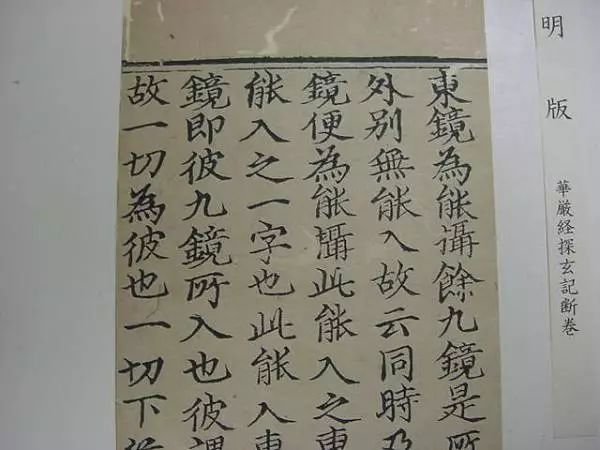 明版
華厳経探玄記断巻
東鏡為能攝餘九鏡是所
外別無能入故云同時乃
鏡便為能攝此能入之東
能入之一字也此能入東
鏡即彼九鏡所入也彼謂
故一切為彼也一切下